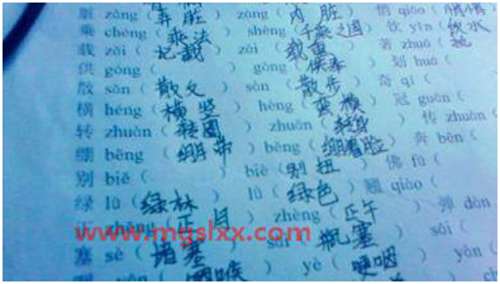 脏 zāng（弄脏） zàng（内脏） 悄 qiāo（悄悄
乘 chéng（乘法） shèng（千乘之国） 饮 yǐn（饮水
载 zǎi（记载） zài（载重） 著 zhuó（
供 gōng（ ） gòng（供奉） 划 huá（
散 sǎn（散文） sàn（散步） 奇 qí（
横 héng（横竖 ） hèng（蛮横 ） 冠 guān（
转 zhuǎn（ ） zhuàn（ ） 传 zhuàn（
绷 bēng（绷带 ） （绷着脸） 奔 bēn（
别 bié（ ） biè（别扭 ） 佛 fú（
绿 lù（绿林 ） lǜ（绿色 ） 翘 qiáo（
正 zhēng（正月 ） zhèng（正午 ） 弹 dàn（
塞 sè（ ） sāi（瓶塞
（咽喉 ） yè（哽咽
www.mgslxx.com